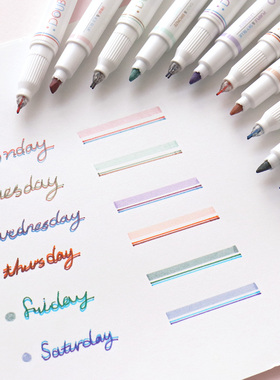 onday
uesday
wednesday
thursday
Friday
Saturday